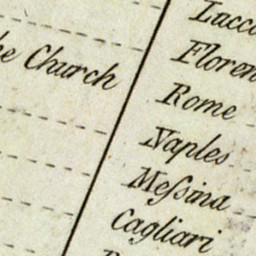 he Church
Floren
Rome
Naples
Meſsina
Cagliari